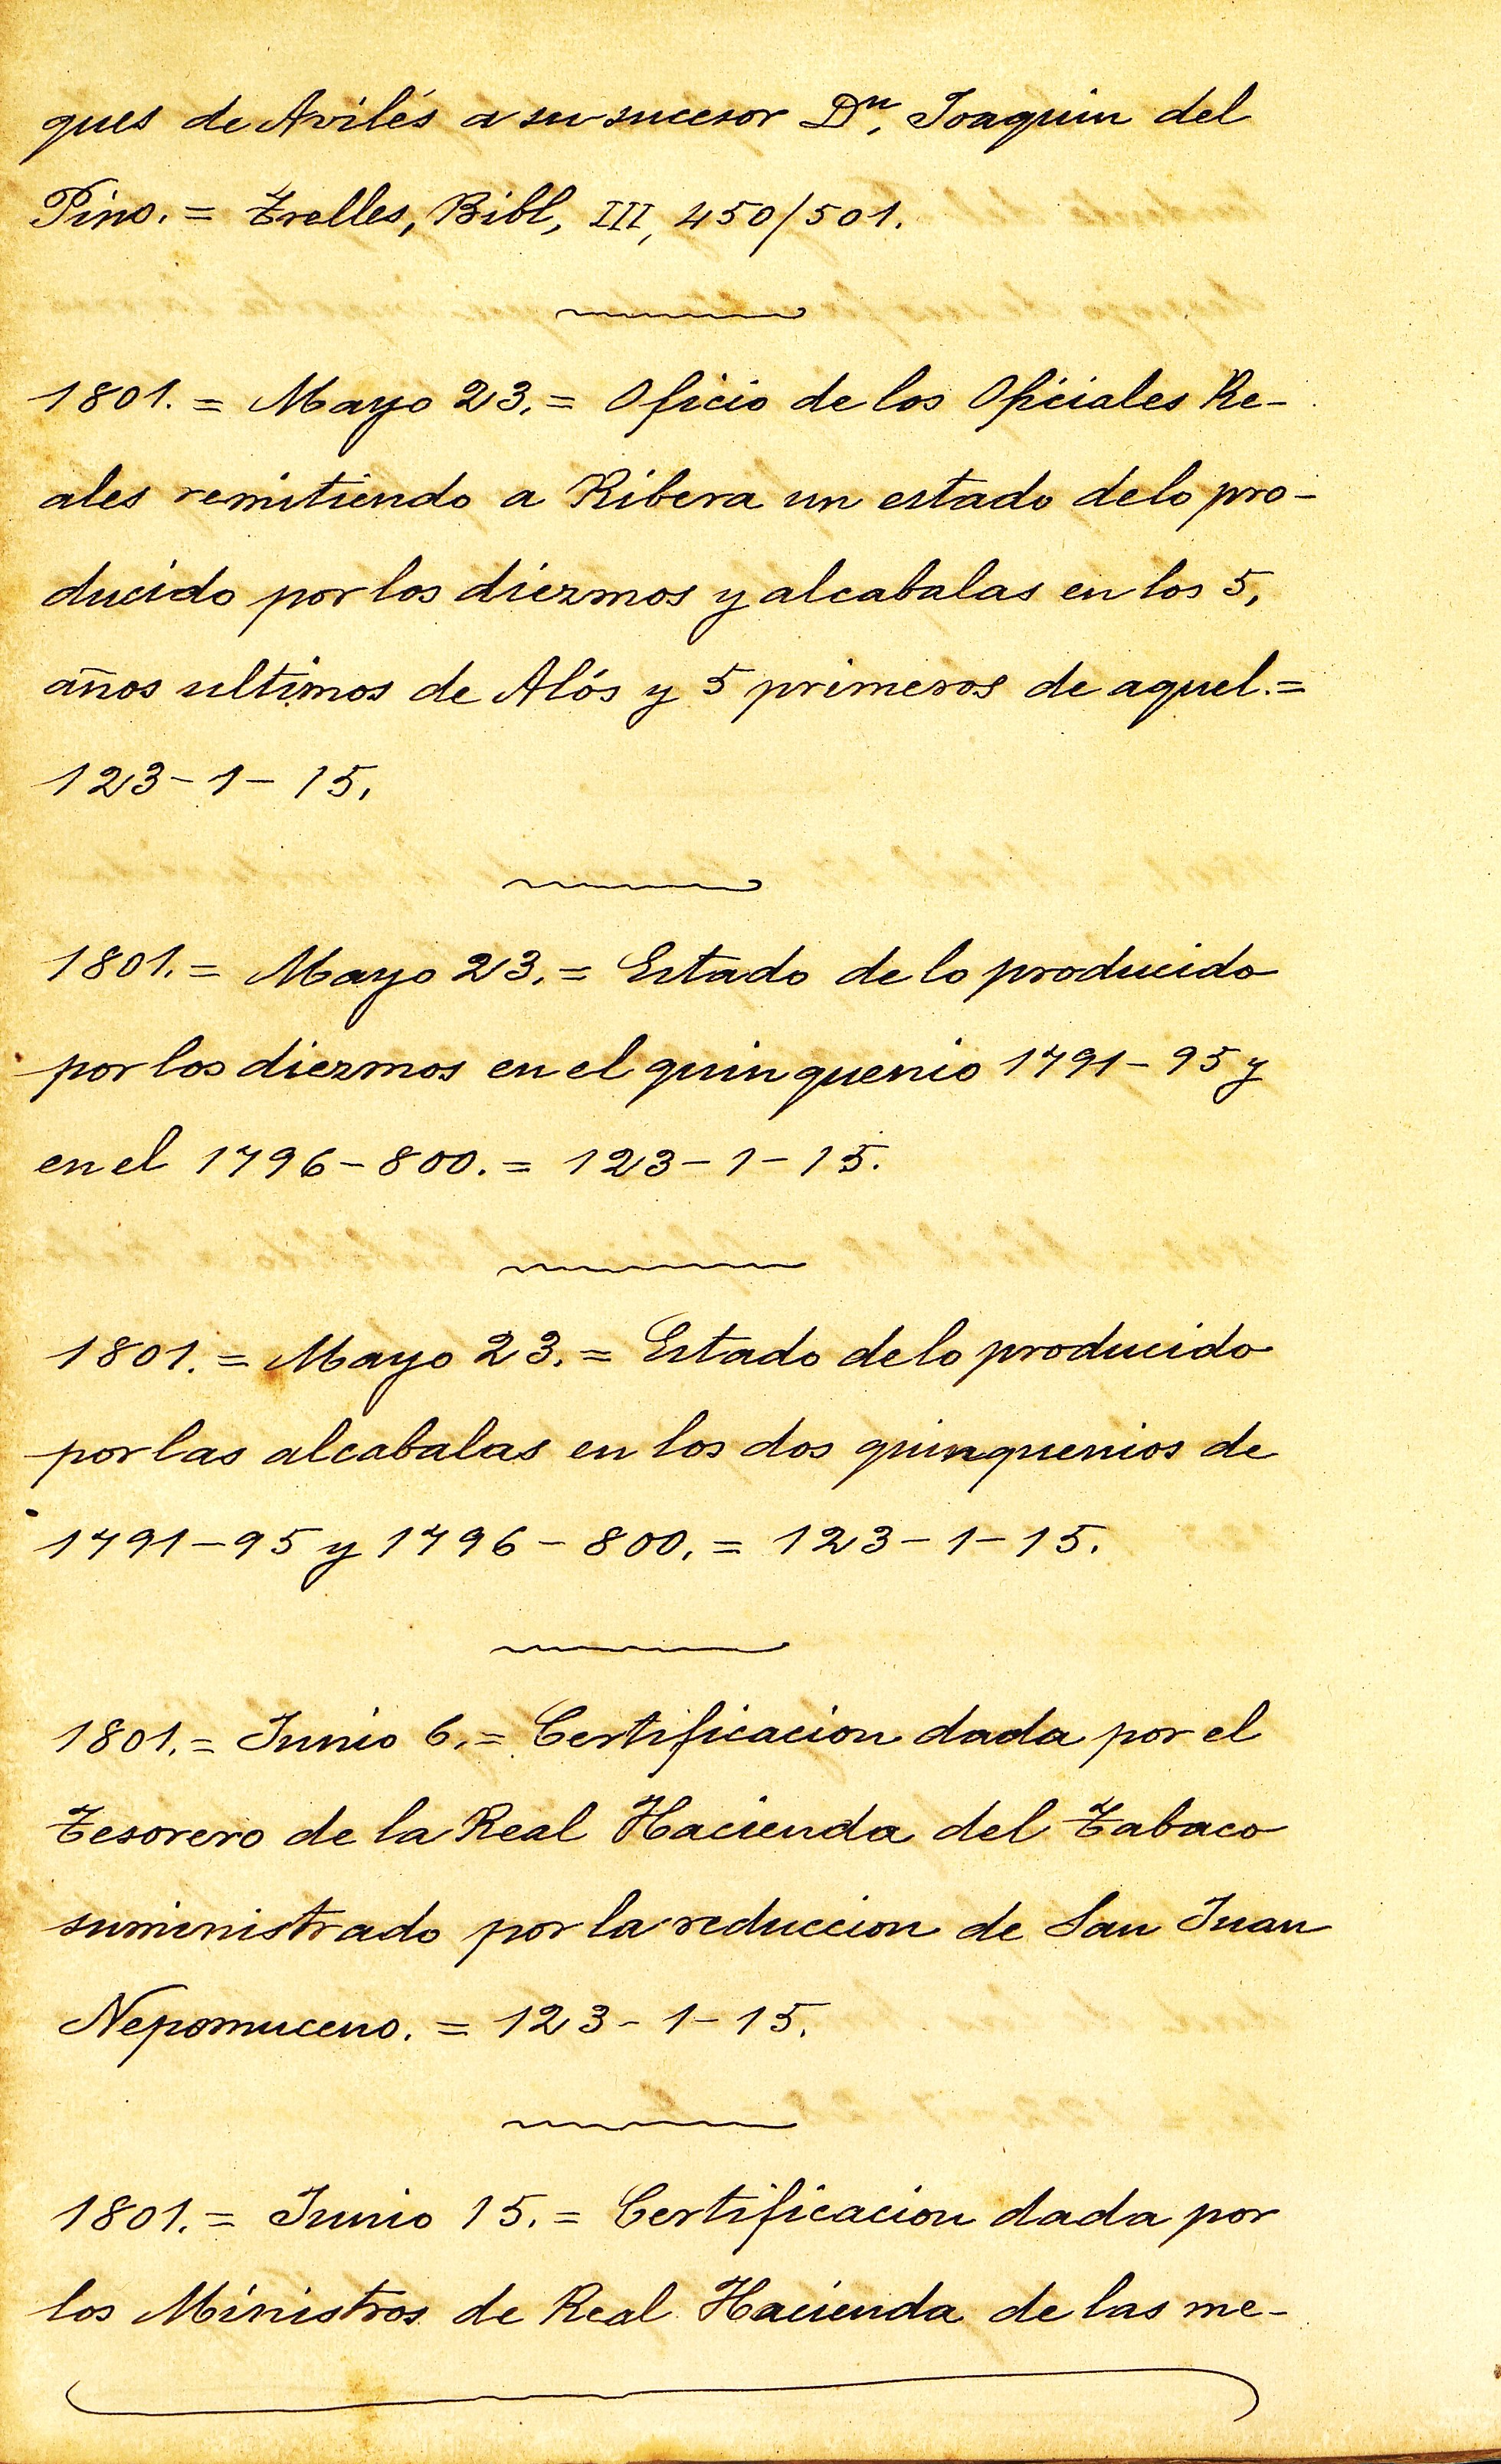 ques de Avilés a su sucesor Dⁿ, Joaquin del
Pino. = Trelles, Bibl, III, 450/501.
1801. = Mayo 23. = Oficio de los Oficiales Re-
ales remitiendo a Ribera un estado de lo pro-
ducido por los diezmos y alcabalas en los 5,
años ultimos de Alós y 5 primeros de aquel. =
123-1-15.
1801. = Mayo 23. = Estado de lo producido
por los diezmos en el quinquenio 1791-95 y
en el 1796-800. = 123-1-15.
1801. = Mayo 23. = Estado de lo producido
por las alcabalas en los dos quinquenios de
1791-95 y 1796-800. = 123-1-15.
1801. = Junio 6. = Certificacion dada por el
Tesorero de la Real Hacienda del Tabaco
suministrado por la reduccion de San Juan
Nepomuceno. = 123-1-15.
1801. = Junio 15. = Certificacion dada por
los Ministros de Real Hacienda de las me-